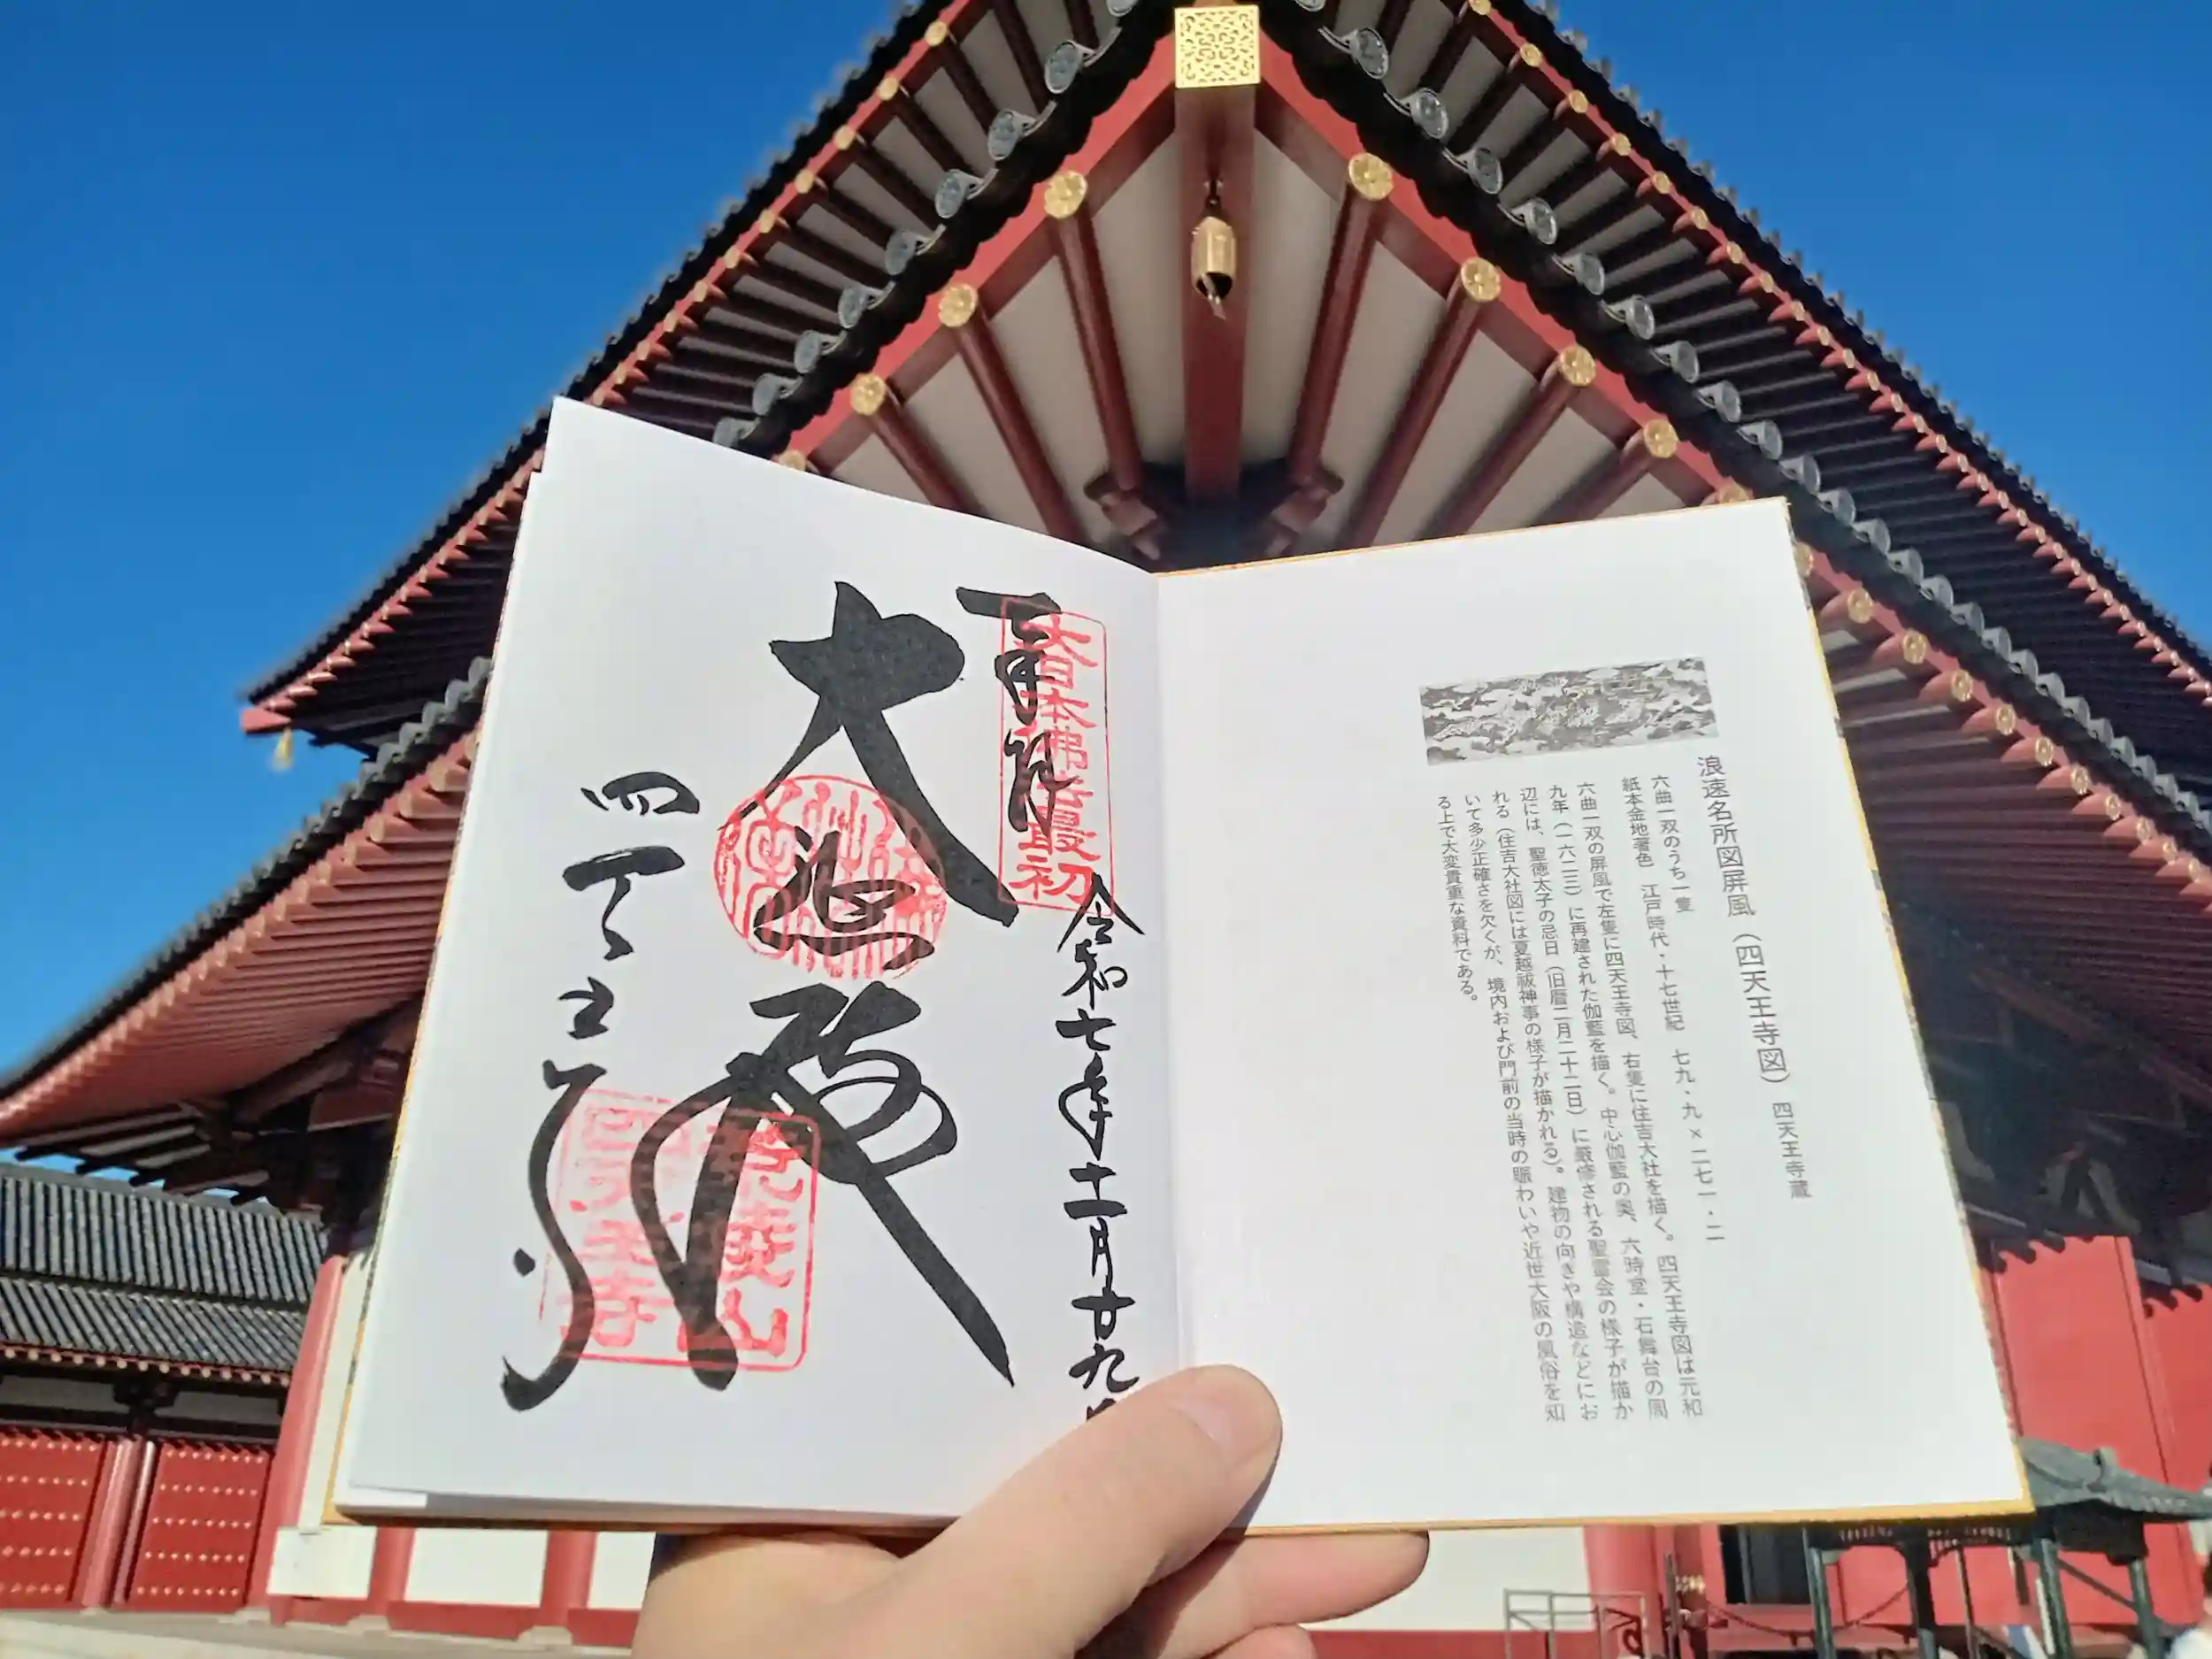 浪速名所図屏風（四天王寺図）　四天王寺蔵
六曲一双のうち一隻
紙本金地著色　江戸時代・十七世紀　七九・九×二七一・二
六曲一双の屏風で左隻に四天王寺図、右隻に住吉大社を描く。四天王寺図は元和
九年（一六二三）に再建された伽藍を描く。中心伽藍の奥、六時堂・石舞台の周
辺には、聖徳太子の忌日（旧暦二月二十二日）に厳修される聖霊会の様子が描か
れる（住吉大社図には夏越祓神事の様子が描かれる）。建物の向きや構造などにお
いて多少正確さを欠くが、境内および門前の当時の賑わいや近世大阪の風俗を知
る上で大変貴重な資料である。
令和七年十一月廿九日
奉拝
大日本佛法最初
大悲殿
四天王寺
荒陵山
四天王寺